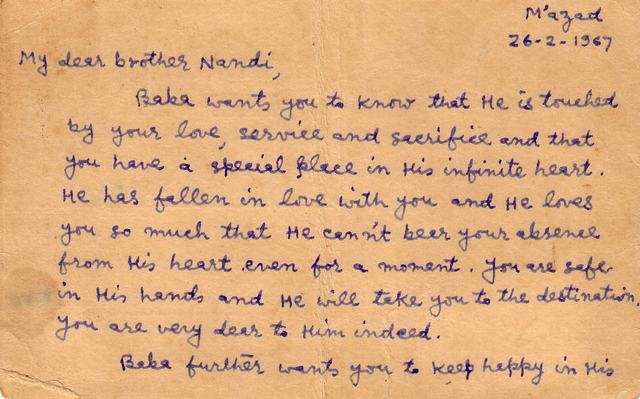 M'azad
26-2-1967
My dear brother Nandi,
Baba wants you to know that He is touched
by your love, service and sacrifice and that
you have a special place in His infinite heart.
He has fallen in love with you and He loves
you so much that He cann't bear your absence
from His heart even for a moment. You are safe
in His hands and He will take you to the destination.
You are very dear to Him indeed.
Baba further wants you to keep happy in His